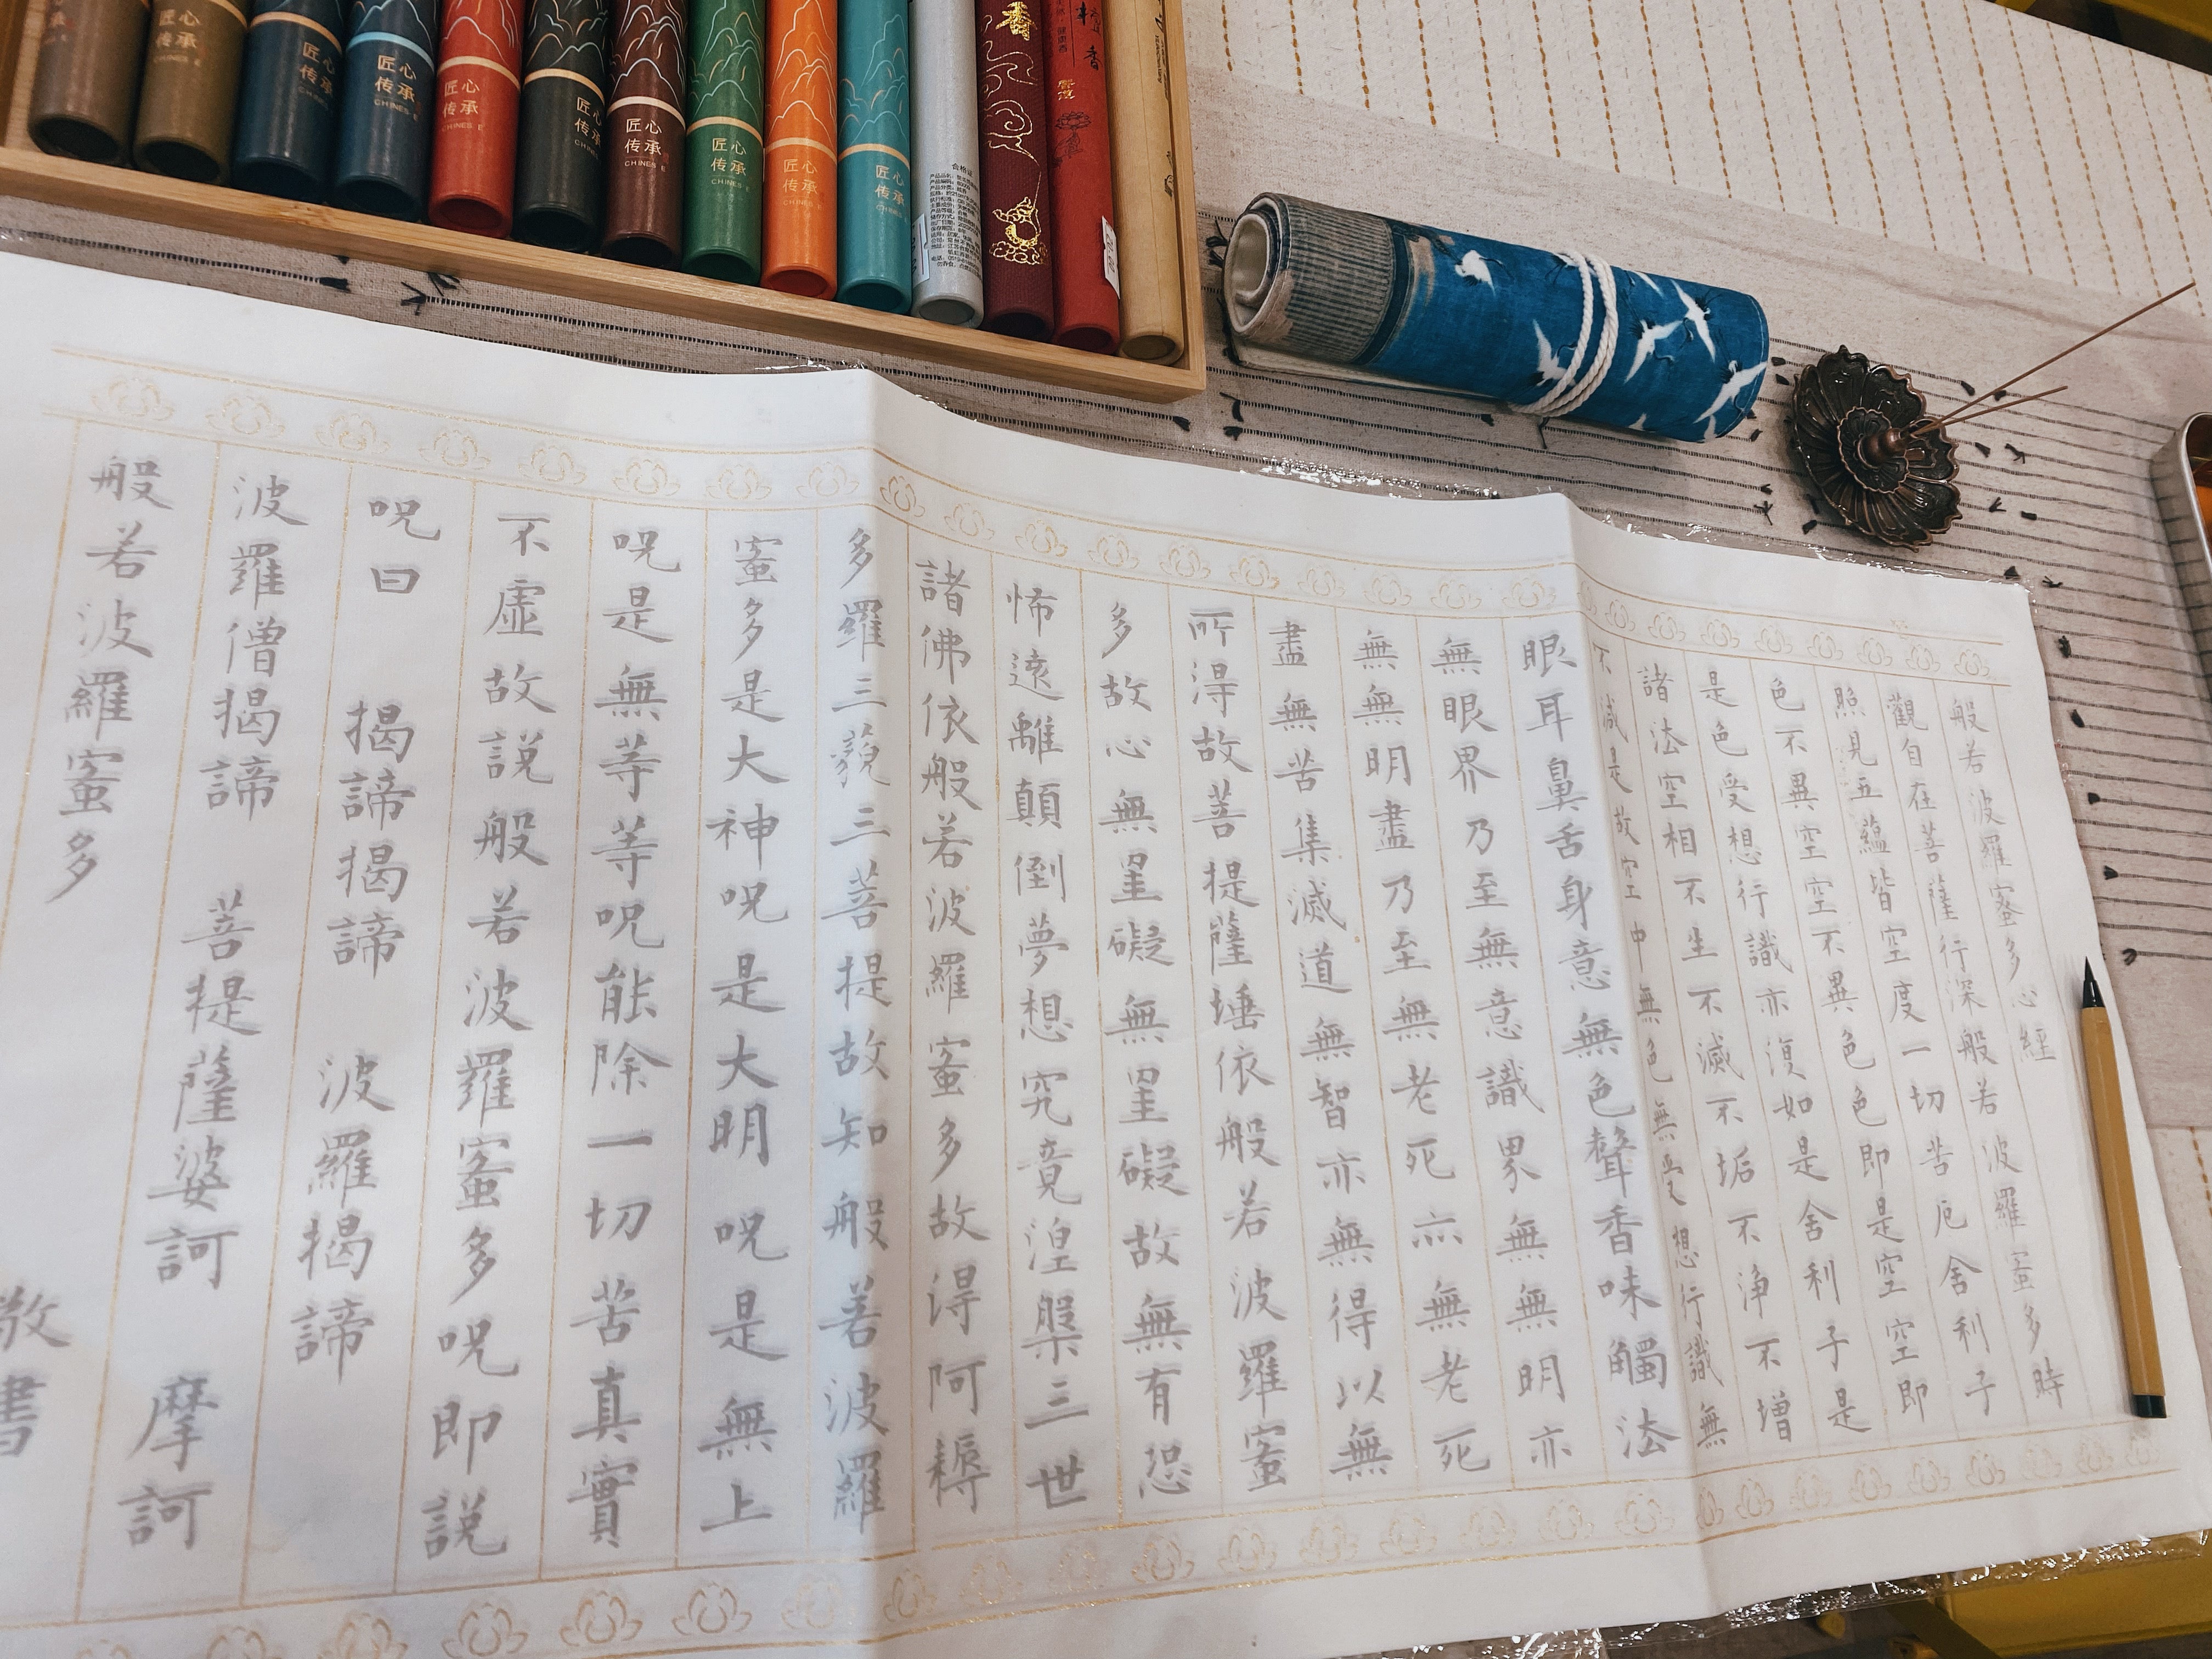 般若波羅蜜多心經
觀自在菩薩行深般若波羅蜜多時
照見五蘊皆空度一切苦厄舍利子
色不異空空不異色色即是空空即
是色受想行識亦復如是舍利子是
諸法空相不生不滅不垢不淨不增
不減是故空中無色無受想行識無
眼耳鼻舌身意無色聲香味觸法
無眼界乃至無意識界無無明亦
無無明盡乃至無老死亦無老死
盡無苦集滅道無智亦無得以無
所得故菩提薩埵依般若波羅蜜
多故心無罣礙無罣礙故無有恐
怖遠離顛倒夢想究竟涅槃三世
諸佛依般若波羅蜜多故得阿耨
多羅三藐三菩提故知般若波羅
蜜多是大神呪是大明呪是無上
呪是無等等呪能除一切苦真實
不虛故說般若波羅蜜多呪即說
呪曰 揭諦揭諦 波羅揭諦
波羅僧揭諦 菩提薩婆訶 摩訶
般若波羅蜜多
敬書
匠心
传承
匠心
传承
CHINES E
匠心
传承
CHINES E
匠心
传承
CHINES E
匠心
传承
CHINES E
匠心
传承
CHINES E
匠心
传承
CHINES E
匠心
传承
CHINES E
匠心
传承
CHINES E
合格证
香
香